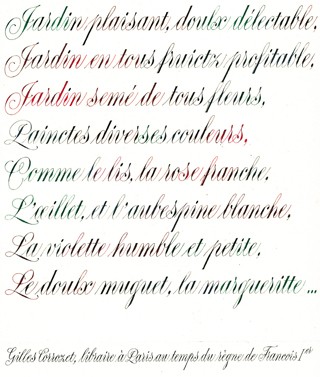 Jardin plaisant, doulx délectable,
Jardin en tous fruictz profitable,
Jardin semé de tous fleurs,
Painctes diverses couleurs,
Comme le lis, la rose franche,
L'œillet, et l'aubespine blanche,
La violette humble et petite,
Le doulx muguet, la margueritte ...
Gilles Corrozet, libraire à Paris au temps du règne de Francois 1er